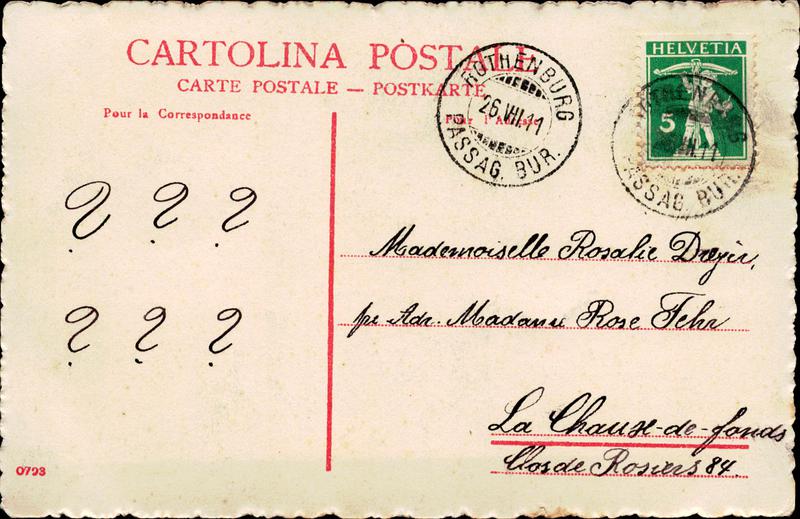 CARTOLINA POSTALE
CARTE POSTALE — POSTKARTE
Pour la Correspondance
Pour l'Adresse
ROTHENBURG
26.VII.11
PASSAG. BUR.
HELVETIA
5
PASSAG. BUR.
? ? ?
? ? ?
Mademoiselle Rosalie
pr Adr. Madame Rose Fehr
La Chaux-de-fonds
Clos de Rosiers 84.
0793